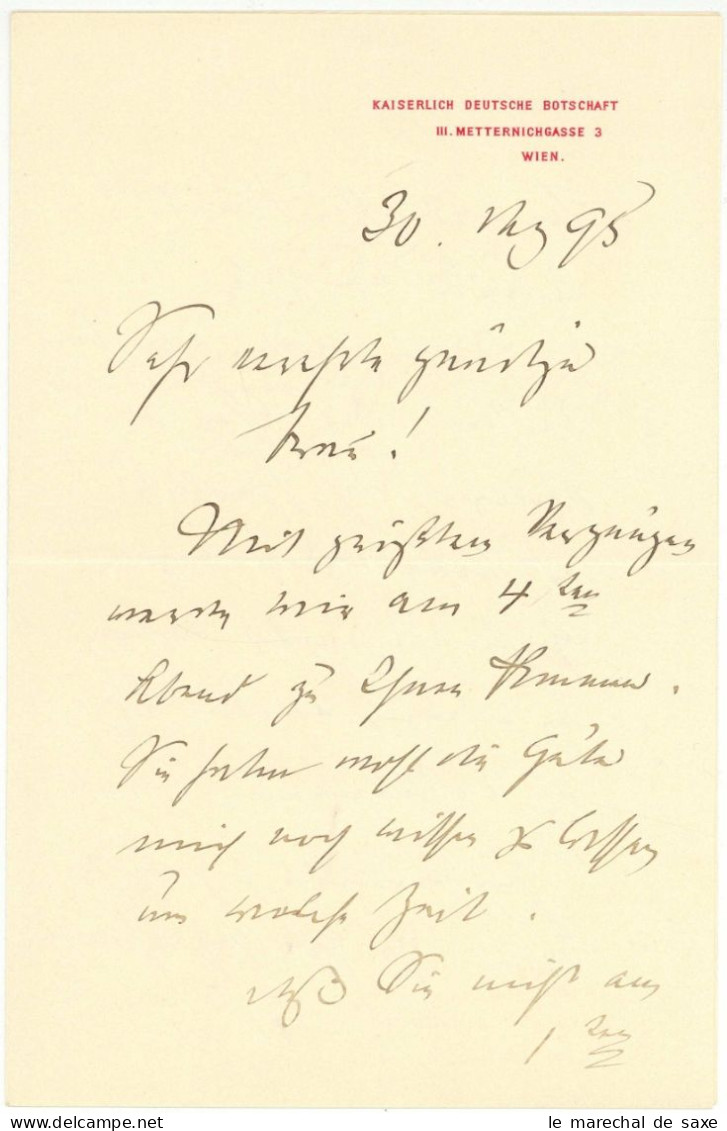 KAISERLICH DEUTSCHE BOTSCHAFT
III. METTERNICHGASSE 3
WIEN.
30. 95
Sehr verehrte gnädige
Frau!
Mit größtem Vergnügen
werden wir am 4ten
Abend zu Ihnen kommen.
Sie haben wohl die Güte
mich noch wissen zu lassen
um welche Zeit.
Daß Sie nicht am
1ten
le marechal de saxe